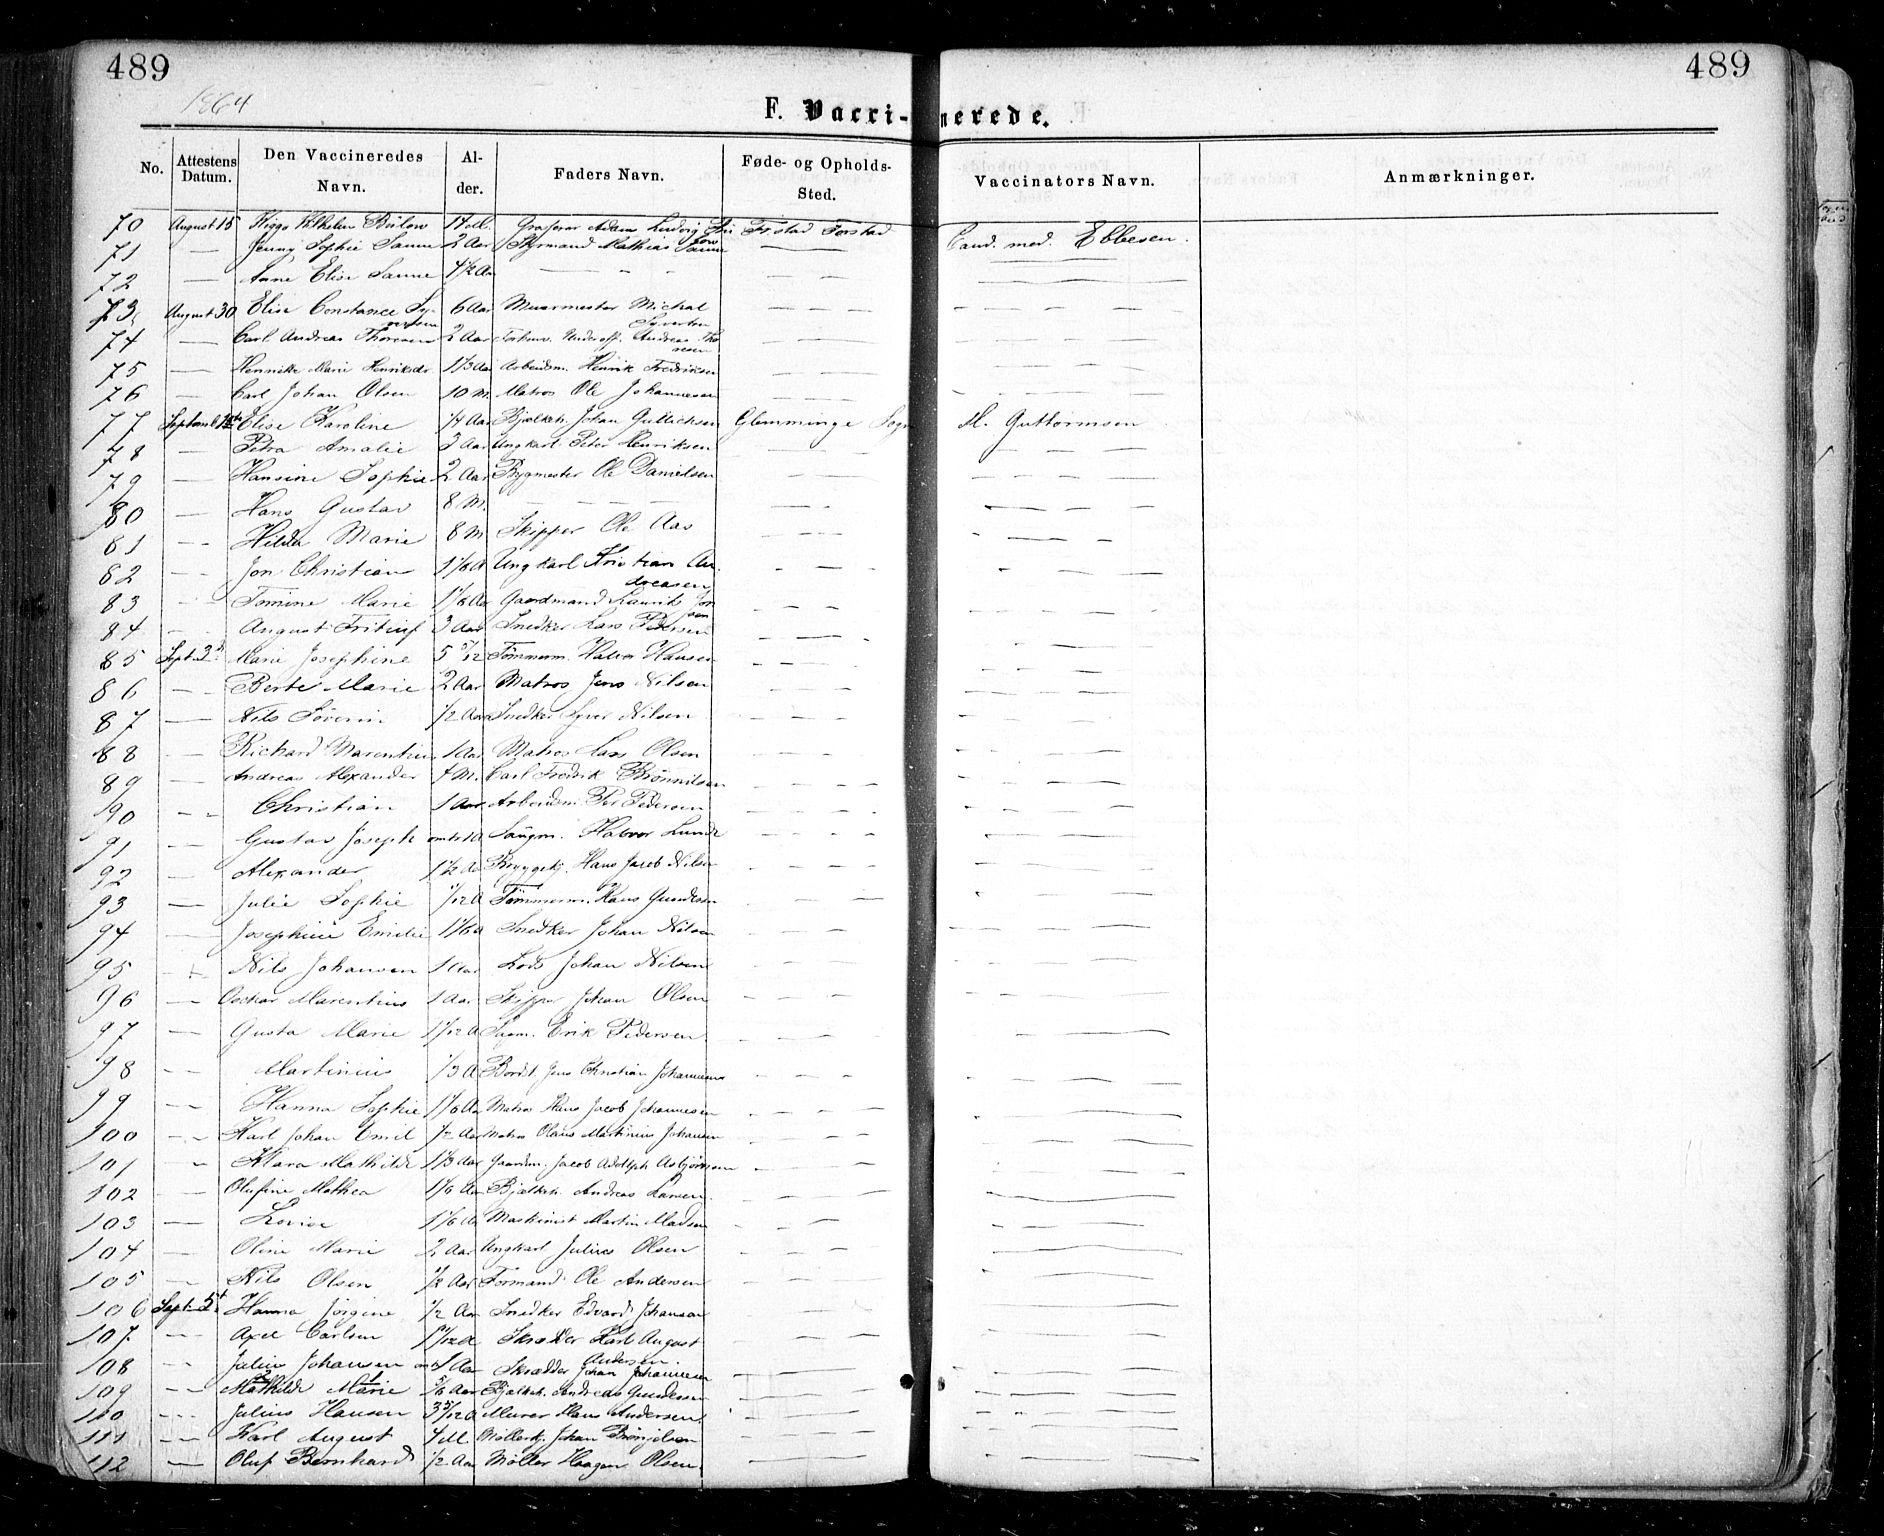 489 489
1864
F. Vacci-nerede.
No. Attestens Datum. Den Vaccineredes Navn. Al-der. Faders Navn. Føde- og Opholds-Sted. Vaccinators Navn. Anmærkninger.
70 August 15 Wilhelm Bülow 14 M. Adam Ludvig Fr.stad Forstad Cand. med. Ebbesen.
71 — Jenny Sophie Sanne 2 Aar Styrmand Mathias Sanne — —
72 — Anne Elise Sanne 4½ Aar — — — —
73 August 30 Elise Constance Sy-vertsen 6 Aar Muurmester Michal Syvertsen — — — — — —
74 — Carl Andreas Thoresen 2 Aar Underoff. Andreas Tho-resen — — — — —
75 — Henrikke Marie Henriksdr. 1 1/3 Aar Arbeidsm. Henrik Fredriksen — — — — —
76 — Carl Johan Olsen 10 M. Matros Ole Johannesen — — — — —
77 Septemb. Elise Karoline 1/4 Aar Bjælkeh. Johan Gullichsen Glemminge Sogn M. Guttormsen
78 — Petra Amalie 3 Aar Ungkarl Peter Henriksen — — — — —
79 — Hansine Sophie 2 Aar Bygmester Ole Danielsen — — — — —
80 — Hans Gustav 8 M. — — — — — —
81 — Hilda Marie 8 M Skipper Ole Aas — — — — —
82 — Jon Christian 1 1/6 A Ungkarl Kristian An-dreasen — — — — —
83 — Tomine Marie 1 1/8 Aar Gaardmand Laurits Jon-sen — — — — —
84 — August Fritiuf 3 Aar Snedker Lars Pedersen — — — —
85 Sept. 3d Marie Josephine 5 5/12 Tømmerm. Halvor Hansen — — — — —
86 — Berte Marie 2 Aar Matros Jens Nilsen — — — — —
87 — Nils Søverin 1/2 Aar Snedker Syver Nilsen — — — — —
88 — Richard Marentius 1 Aar Matros Lars Olsen — — — — —
89 — Andreas Alexander 7 M. Carl Fredrik Brønnilsen — — — — —
90 — Christian 1 Aar Arbeidsm. Per Pedersen — — — — —
91 — Gustav Joseph omtr. 1 A Saugm. Halvor Lunde — — — — —
92 — Alexander 1½ Aar Bryggekj. Hans Jacob Nilsen — — — — —
93 — Julie Sophie 1/12 A Tømmerm. Hans Gundersen — — — — —
94 — Josephine Emilie 1 1/6 A Snedker Johan Nilsen — — — — —
95 — Nils Johansen 1 Aar Lods Johan Nilsen — — — — —
96 — Oschar Marentius 1 Aar Skipper Johan Olsen — — — — —
97 — Gusta Marie 1 1/12 A Sagm. Erik Pedersen — — — — —
98 — Martinius 1/3 A Bordst. Jens Christian Johannesen — — — — —
99 — Hanna Sophie 1 1/6 Aar Matros Hans Jacob Johannesen — — — — —
100 — Karl Johan Emil 1/2 Aar Matros Olaus Martinius Johansen — — — — —
101 — Klara Mathilde 1 1/3 Aar Gaardm. Jacob Adolph Asbjørnsen — — — — —
102 — Olufine Mathea 1 1/6 Aar Bjælkeh. Andreas Larsen — — — — —
103 — Lovise 1 1/6 Aar Maskinist Martin Madsen — — — — —
104 — Oline Marie 2 Aar Ungkarl Julius Olsen — — — — —
105 — Nils Olsen 1/2 Aar Formand Ole Andersen — — — — —
106 Septbr. 5t Hanna Jørgine 1/2 Aar Snedker Edvard Johansen — — — — —
107 — Axel Carlsen 1 1/12 A Skrædder Karl August Andersen. — — — — —
108 — Julius Johansen omtr. 1 Aar Skrædder Johan Johannesen — — — — —
109 — Mathilde Marie 5/6 Aar Bjælkeh. Andreas Gundersen — — — — —
110 — Julius Hansen 3 5/12 A Murer Hans Andersen — — — — —
111 — Karl August 4 M. Møllerkj. Johan Brønjelsen — — — — —
112 — Oluf Bernhard 1/2 Aar Møller Haagen Olsen — — — — —